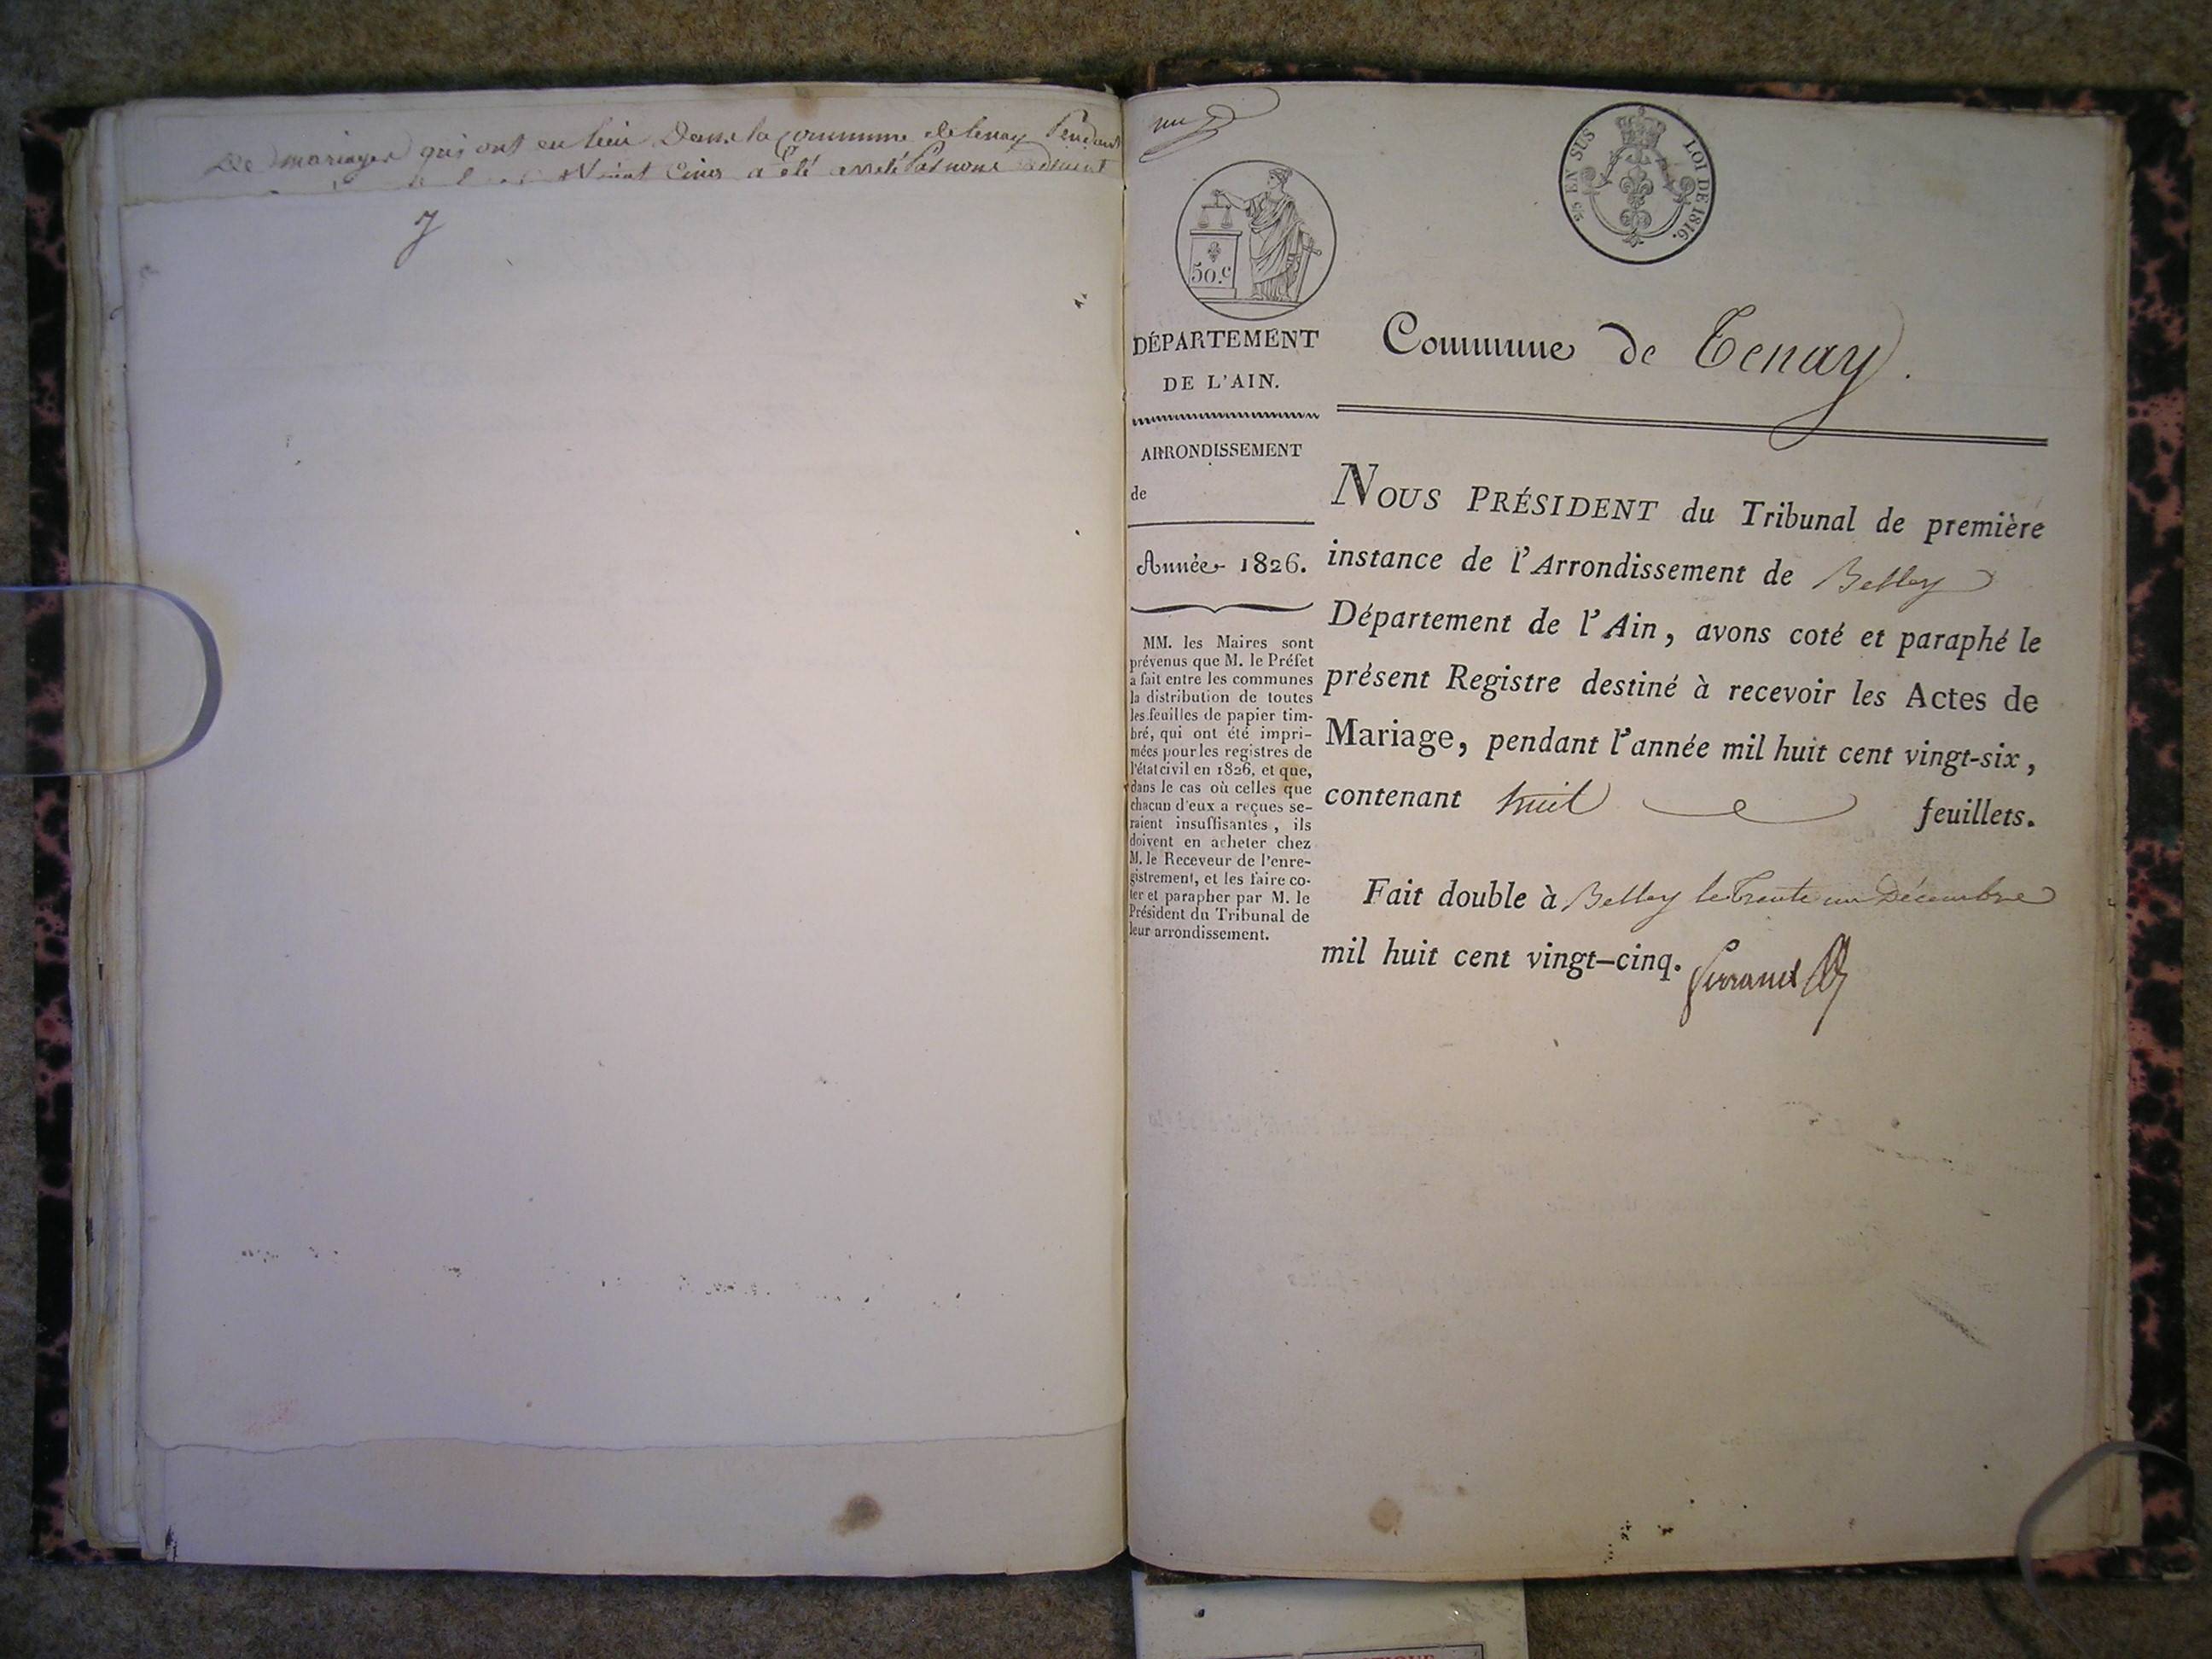 De mariages qui ont eu lieu Dans la Commune de tenay Pendant
Vingt Cinq a été arrêté Par nous
50.c
25 EN SUS
LOI DE 1816.
DÉPARTEMENT
DE L'AIN.
ARRONDISSEMENT
de
Année 1826.
MM. les Maires sont
prévenus que M. le Préfet
a fait entre les communes
la distribution de toutes
les feuilles de papier tim-
bré, qui ont été impri-
mées pour les registres de
l'état civil en 1826, et que,
dans le cas où celles que
chacun d'eux a reçues se-
raient insuffisantes, ils
doivent en acheter chez
M. le Receveur de l'enre-
gistrement, et les faire co-
ter et parapher par M. le
Président du Tribunal de
leur arrondissement.
Commune de Tenay.
NOUS PRÉSIDENT du Tribunal de première
instance de l'Arrondissement de Belley
Département de l'Ain, avons coté et paraphé le
présent Registre destiné à recevoir les Actes de
Mariage, pendant l'année mil huit cent vingt-six,
contenant huit feuillets.
Fait double à Belley le trente un Décembre
mil huit cent vingt-cinq.